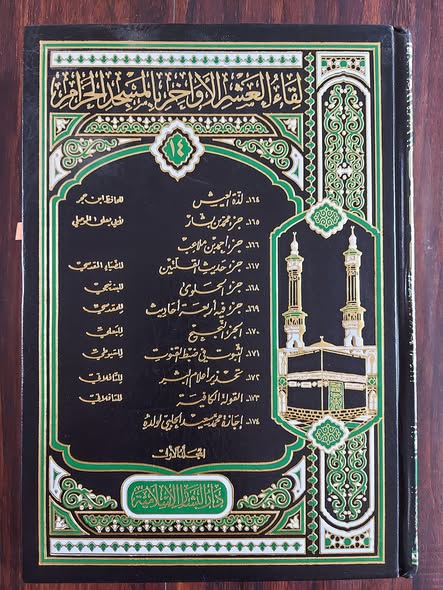 لقاء العشر الأواخر بالمسجد الحرام
١٤
١٦٤. لذة العيش للحافظ ابن حجر
١٦٥. جزء محمد بن بشار لأبي يعلى الموصلي
١٦٦. جزء أحمد بن ملاعب
١٦٧. جزء حديث القلتين للضياء المقدسي
١٦٨. جزء الحلوى
١٦٩. جزء فيه أربعة أحاديث للمقدسي
١٧٠. الجزء
١٧١. الثبوت في ضبط القنوت للسيوطي
١٧٢. تحذير أعلام البشر للقاوقجي
١٧٣. القولة الكافية
١٧٤. إجازة محمد سعيد الحلبي لولده
المجلد الأول
دار البشائر الإسلامية